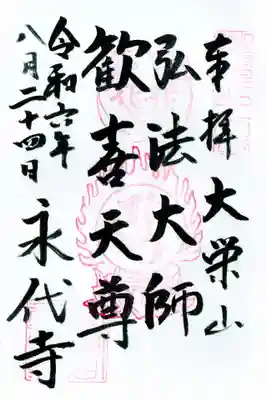 奉拝 大栄山
弘法大師
歓喜天尊
永代寺
令和六年
八月二十四日